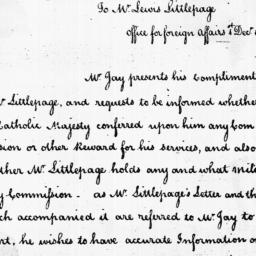 To Mr Lewis Littlepage
Office for foreign Affairs 1st Decr
Mr Jay presents his Compliment
Mr Littlepage, and requests to be informed whethe
Catholic Majesty conferred upon him any Com
sion or other Reward for his services, and also
ther Mr Littlepage holds any and what mili
y Commission. as Mr Littlepage's Letter and th
ch accompanied it are referred to Mr Jay to
rt, he wishes to have accurate Information o